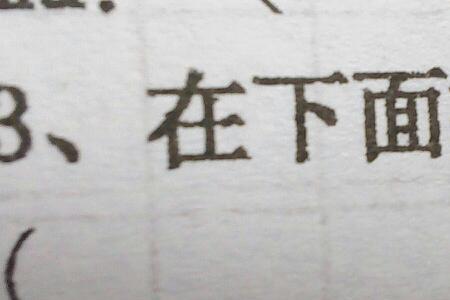 3、在下面
（